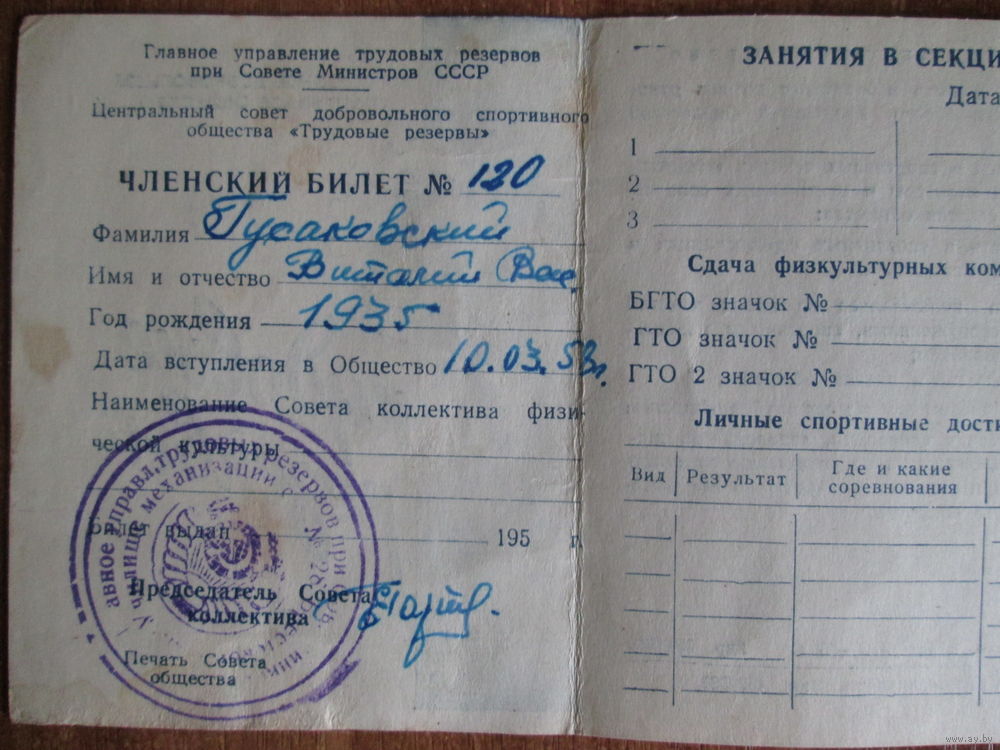 Главное управление трудовых резервов
при Совете Министров СССР
Центральный совет добровольного спортивного
общества «Трудовые резервы»
ЧЛЕНСКИЙ БИЛЕТ № 120
Фамилия Гусаковский
Имя и отчество Виталий Вас.
Год рождения 1935
Дата вступления в Общество 10.03.53г.
Наименование Совета коллектива физи-
ческой культуры
Билет выдан 195 г.
Председатель Совета
коллектива
Печать Совета
общества
трудовых резервов при
училище механизации
ЗАНЯТИЯ В СЕКЦИ
Дата
1
2
3
Сдача физкультурных ком
БГТО значок №
ГТО значок №
ГТО 2 значок №
Личные спортивные дости
Вид Результат Где и какие
соревнования
www.ay.by